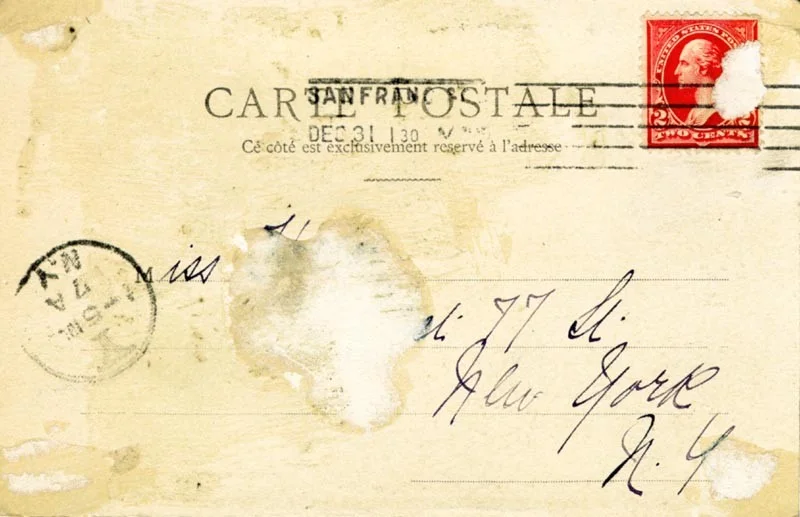 UNITED STATES POS
SAN FRANC
CARTE POSTALE
DEC 31 1 30
Cé côté est exclusivement reservé à l'adresse
2 TWO CENTS 2
Miss
77 St.
New York
N. Y
N.Y.
7 A